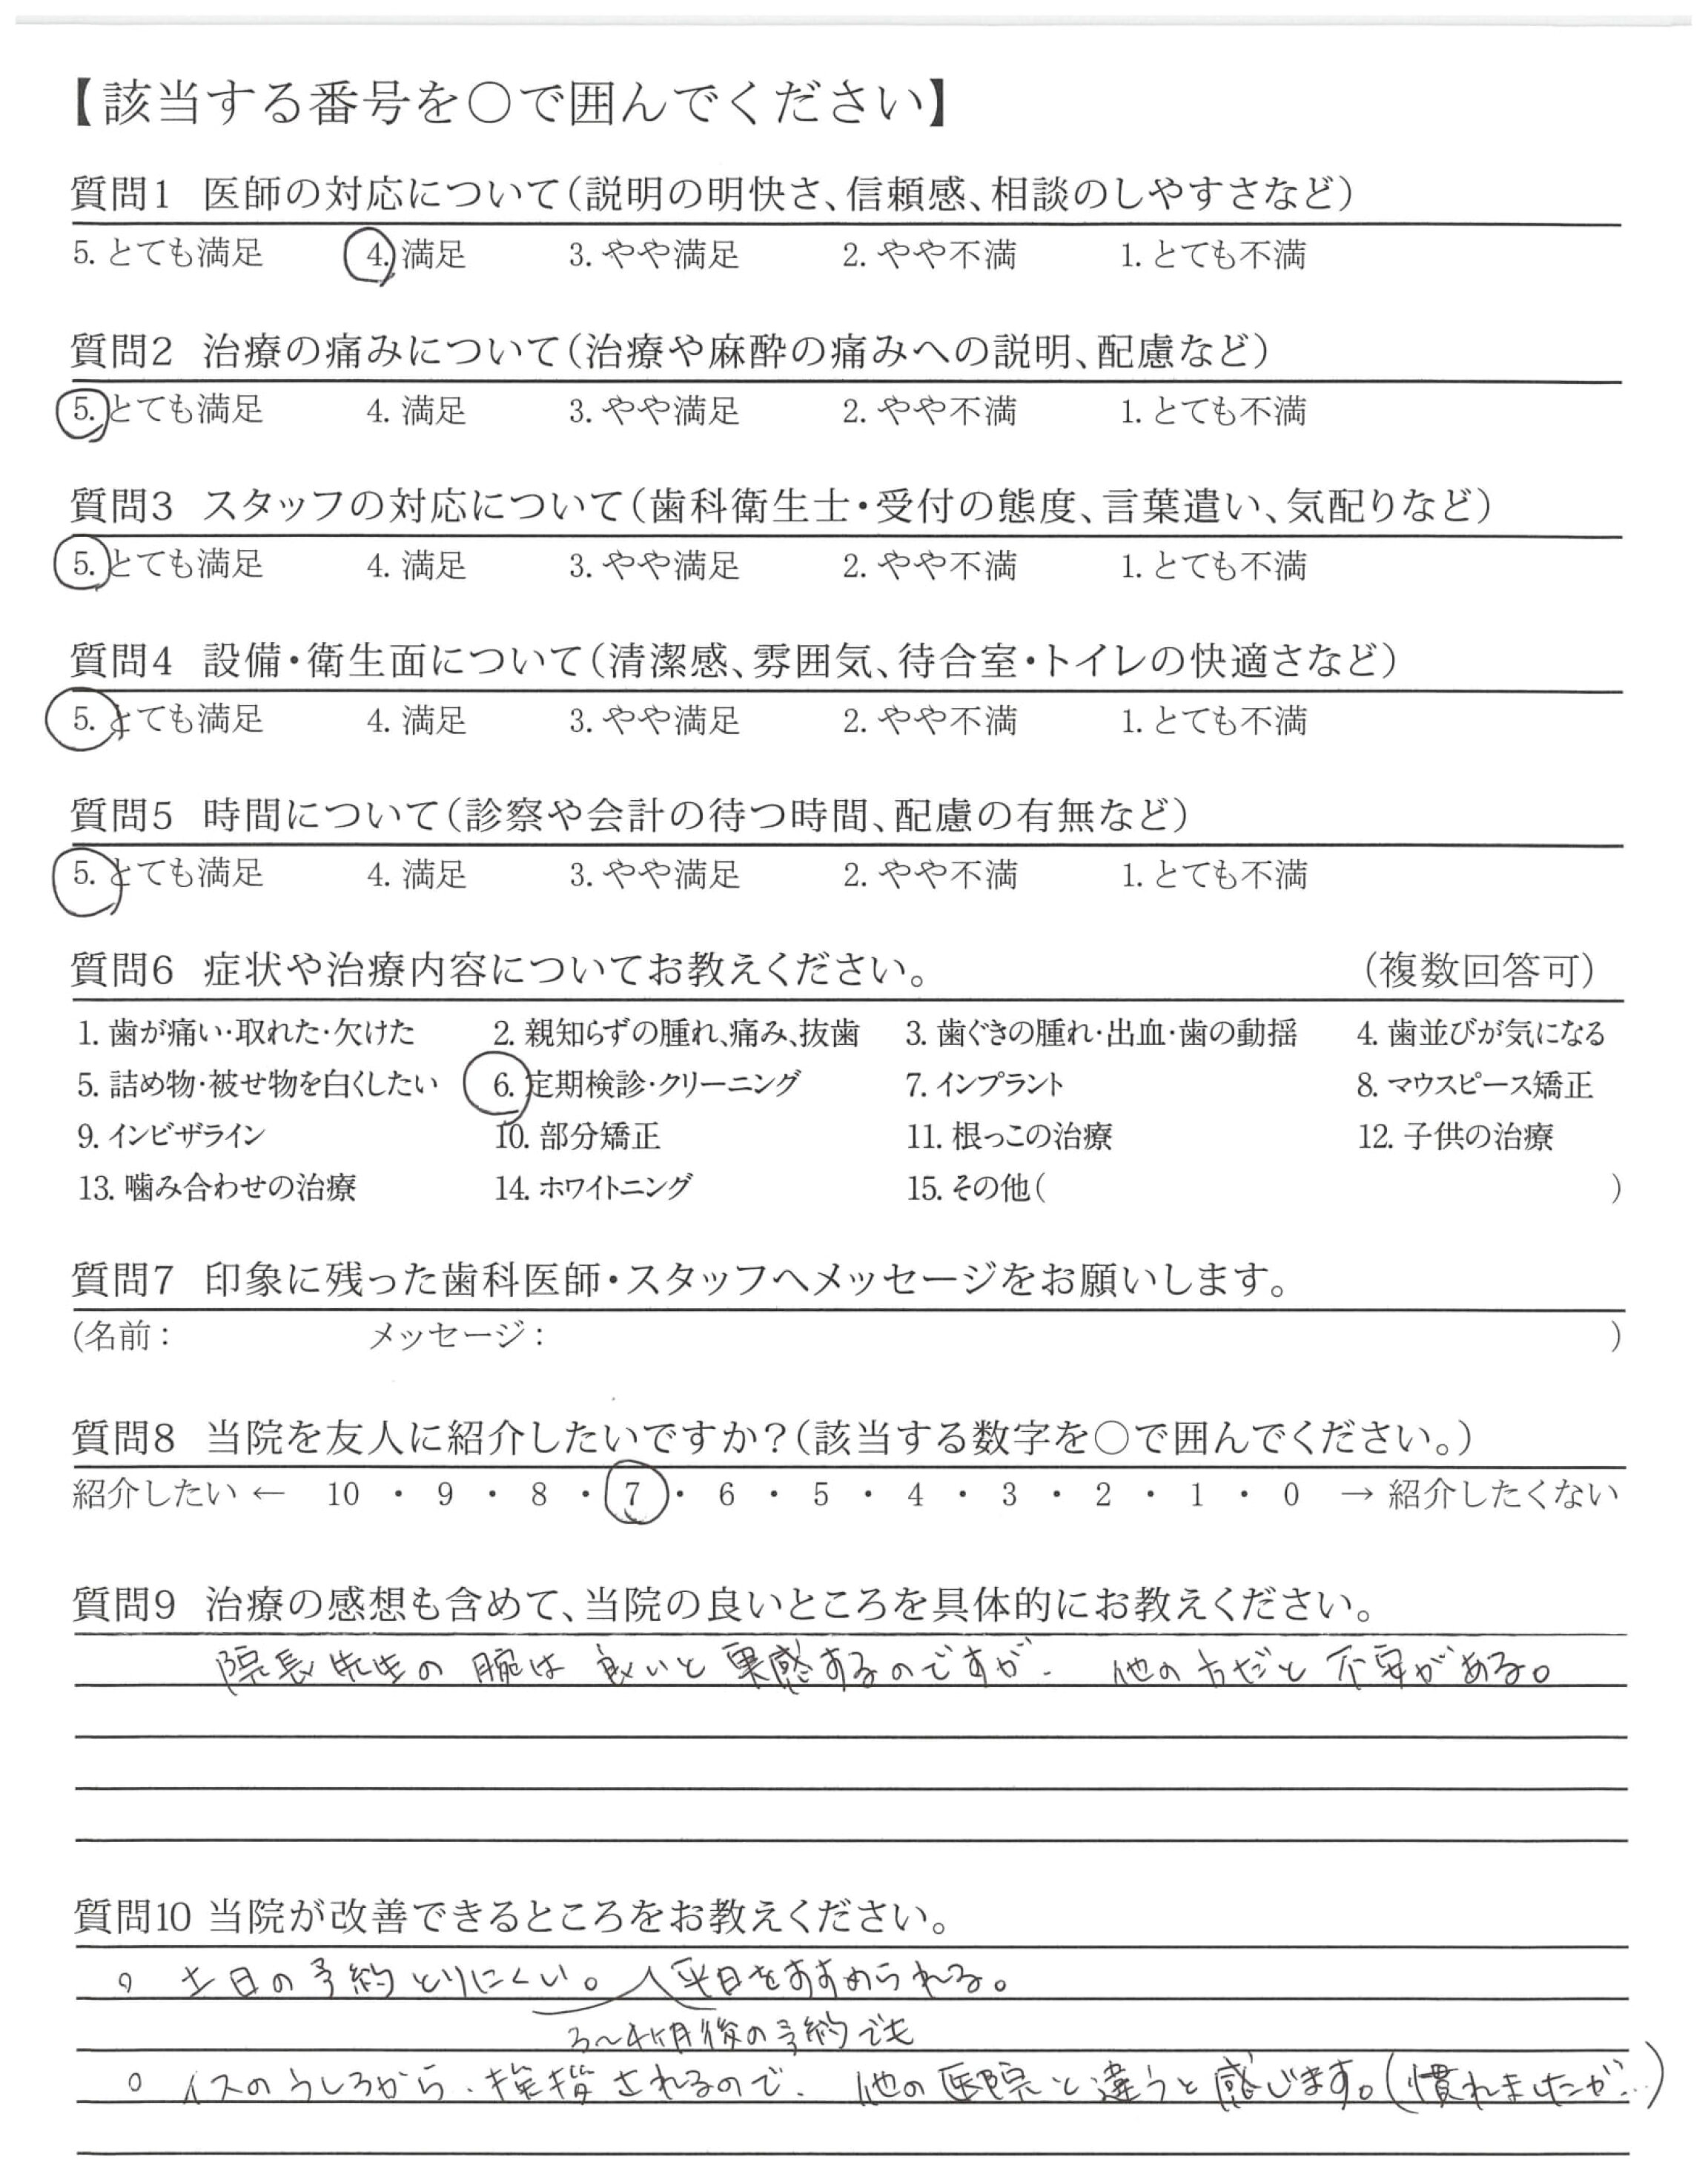 【該当する番号を○で囲んでください】
質問1 医師の対応について(説明の明快さ、信頼感、相談のしやすさなど)
5. とても満足 4. 満足 3. やや満足 2. やや不満 1. とても不満
質問2 治療の痛みについて(治療や麻酔の痛みへの説明、配慮など)
5. とても満足 4. 満足 3. やや満足 2. やや不満 1. とても不満
質問3 スタッフの対応について(歯科衛生士・受付の態度、言葉遣い、気配りなど)
5. とても満足 4. 満足 3. やや満足 2. やや不満 1. とても不満
質問4 設備・衛生面について(清潔感、雰囲気、待合室・トイレの快適さなど)
5. とても満足 4. 満足 3. やや満足 2. やや不満 1. とても不満
質問5 時間について(診察や会計の待つ時間、配慮の有無など)
5. とても満足 4. 満足 3. やや満足 2. やや不満 1. とても不満
質問6 症状や治療内容についてお教えください。 (複数回答可)
1. 歯が痛い・取れた・欠けた 2. 親知らずの腫れ、痛み、抜歯 3. 歯ぐきの腫れ・出血・歯の動揺 4. 歯並びが気になる
5. 詰め物・被せ物を白くしたい 6. 定期検診・クリーニング 7. インプラント 8. マウスピース矯正
9. インビザライン 10. 部分矯正 11. 根っこの治療 12. 子供の治療
13. 噛み合わせの治療 14. ホワイトニング 15. その他( )
質問7 印象に残った歯科医師・スタッフへメッセージをお願いします。
(名前: メッセージ: )
質問8 当院を友人に紹介したいですか?(該当する数字を○で囲んでください。)
紹介したい ← 10 ・ 9 ・ 8 ・ 7 ・ 6 ・ 5 ・ 4 ・ 3 ・ 2 ・ 1 ・ 0 → 紹介したくない
質問9 治療の感想も含めて、当院の良いところを具体的にお教えください。
院長先生の腕は良いと実感するのですが、他の方だと不安がある。
質問10 当院が改善できるところをお教えください。
○ 土日の予約とりにくい。平日をすすめられる。
3〜4ヶ月後の予約でも
○ イスのうしろから、挨拶されるので、他の医院と違うと感じます。(慣れましたが…)